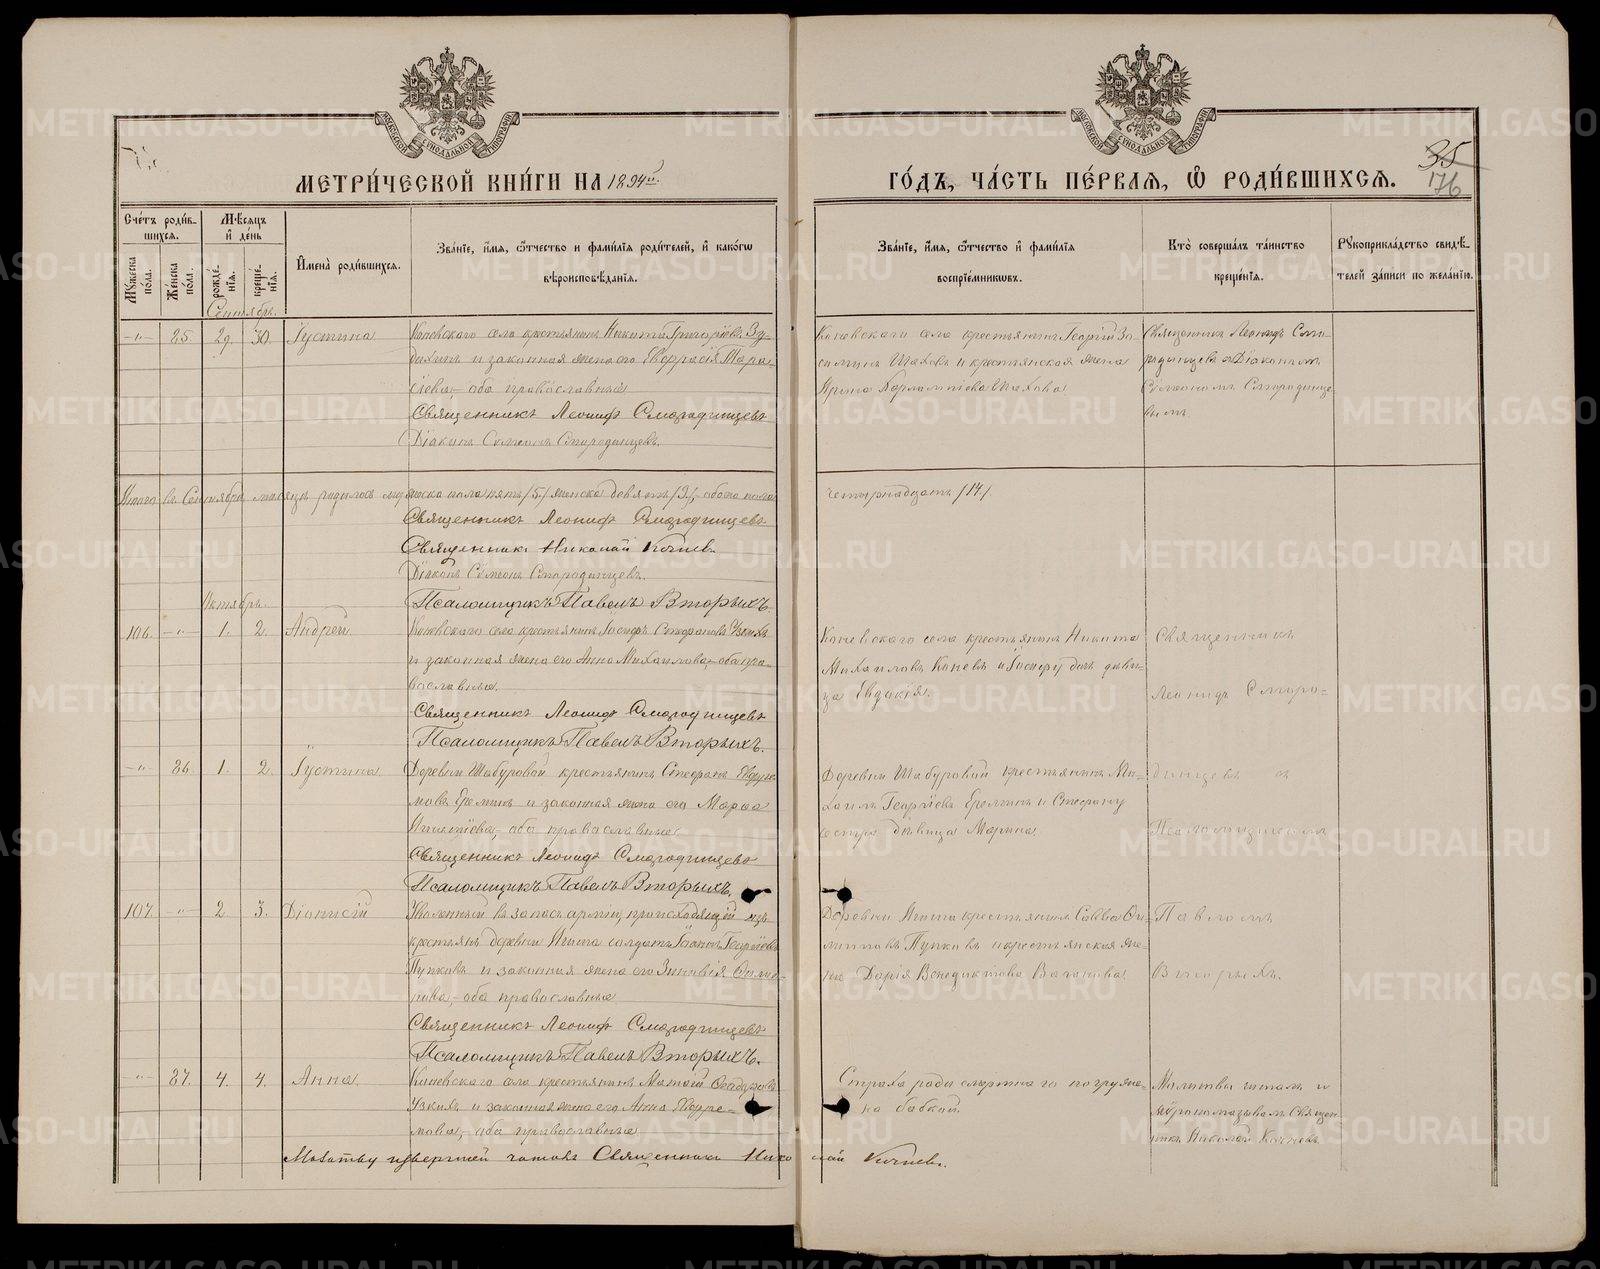 МЕТРИ́ЧЕСКОЙ КНИ́ГИ НА 1894й.
ГО́ДЪ, ЧА́СТЬ ПЕ́РВАЯ, Ѡ РОДИ́ВШИХСЯ.
35
176
Сче́тъ роди́в-
шихся.
Мѣсяцъ
и де́нь
Имена̀ роди́вшихся.
Зва́нїе, и́мя, ѻ́тчество и фами́лїя роди́телей, и како́гѡ
вѣроисповѣ́данїя.
Зва́нїе, и́мя, ѻ́тчество и фами́лїя
воспрїе́мниковъ.
Кто̀ соверша́лъ та́инство
креще́нїя.
Рꙋкоприкла́дство свидѣ́-
телей за́писи по жела́нїю.
Мꙋ́жеска по́ла.
Же́нска по́ла.
рожде́-нїя.
креще́-нїя.
Сентябрь.
-"- 85. 29. 30. Іустина
Коневского села крестьянинъ Никита Григорьевъ
и законная жена его Евфрасія Тара-
сіева, оба православные
Священникъ Леонидъ Смородинцевъ
Діаконъ Симеонъ Смородинцевъ.
Коневского села крестьянинъ Георгій Зо-
симинъ Шаховъ и крестьянская жена
Ирина Шахова
Священникъ Леонидъ Смо-
родинцевъ съ Діакономъ
Симеономъ Смородинце-
вымъ
Итого въ Сентябрѣ месяцѣ родилось мужеска пола пять /5/ женска девять /9/, обоего пола
четырнадцать /14/.
Священникъ Леонидъ Смородинцевъ
Священникъ Николай Кочневъ
Діаконъ Симеонъ Смородинцевъ.
Псаломщикъ Павелъ Вторыхъ.
Октябрь.
106. -"- 1. 2. Андрей
Коневского села крестьянинъ Іосифъ Стефановъ Узкихъ
и законная жена его Анна Михаилова, оба пра-
вославные.
Священникъ Леонидъ Смородинцевъ
Псаломщикъ Павелъ Вторыхъ.
Коневского села крестьянинъ Никита
Михаиловъ Коневъ и Іосифу дочь дѣви-
ца Евдокія.
Священникъ
Леонидъ Сморо-
-"- 86. 1. 2. Іустина
Деревни Шабуровой крестьянинъ Стефанъ
Ереминъ и законная жена его Марѳа
оба православные
Священникъ Леонидъ Смородинцевъ
Псаломщикъ Павелъ Вторыхъ.
Деревни Шабуровой крестьянинъ Ми-
хаилъ Георгіевъ Ереминъ и Стефану
сестра дѣвица Марина
динцевъ съ
Псаломщикомъ
107. -"- 2 3. Діонисій
Уволенный въ запасъ арміи, происходящій изъ
крестьянъ деревни солдатъ Іоаннъ Георгіевъ
Пупковъ и законная жена его Зиновія
оба православные
Священникъ Леонидъ Смородинцевъ
Псаломщикъ Павелъ Вторыхъ.
Деревни крестьянинъ Савва
Пупковъ и крестьянская же-
на Дарія Венедиктова Ваганова
Павломъ
Вторыхъ.
-"- 87. 4. 4. Анна.
Коневского села крестьянинъ
Узкихъ и законная жена его Анна
оба православные
Страха ради смертнаго погруже-
на бабкой.
Молитвы читалъ и
мѵропомазывалъ Священ-
никъ Николай Кочневъ
Молитву читалъ Священникъ Нико лай Кочневъ.
METRIKI.GASO-URAL.RU